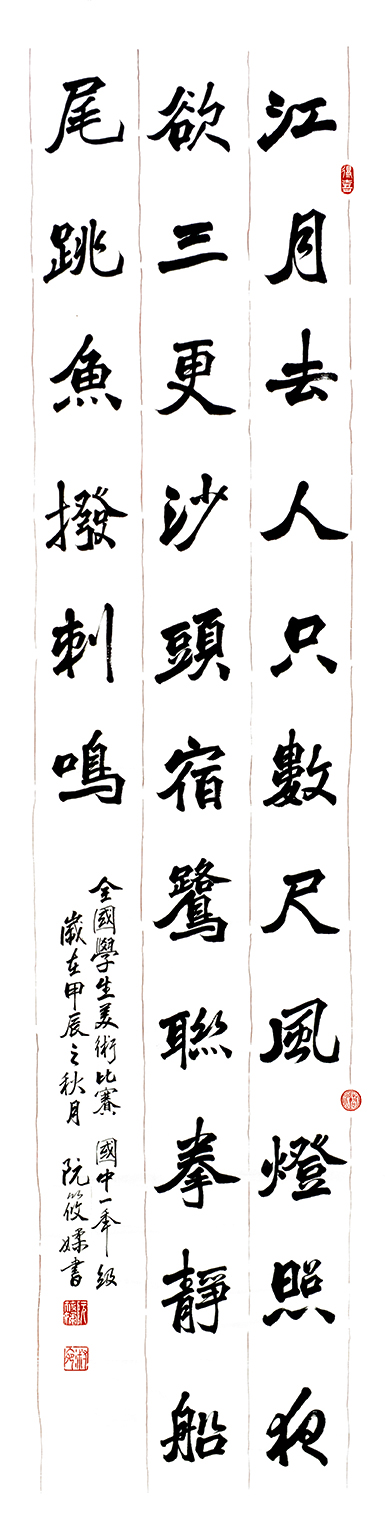 江月去人只數尺風燈照夜
欲三更沙頭宿鷺聯拳靜船
尾跳魚撥刺鳴
全國學生美術比賽 國中一年級
歲在甲辰之秋月 阮筱媃書